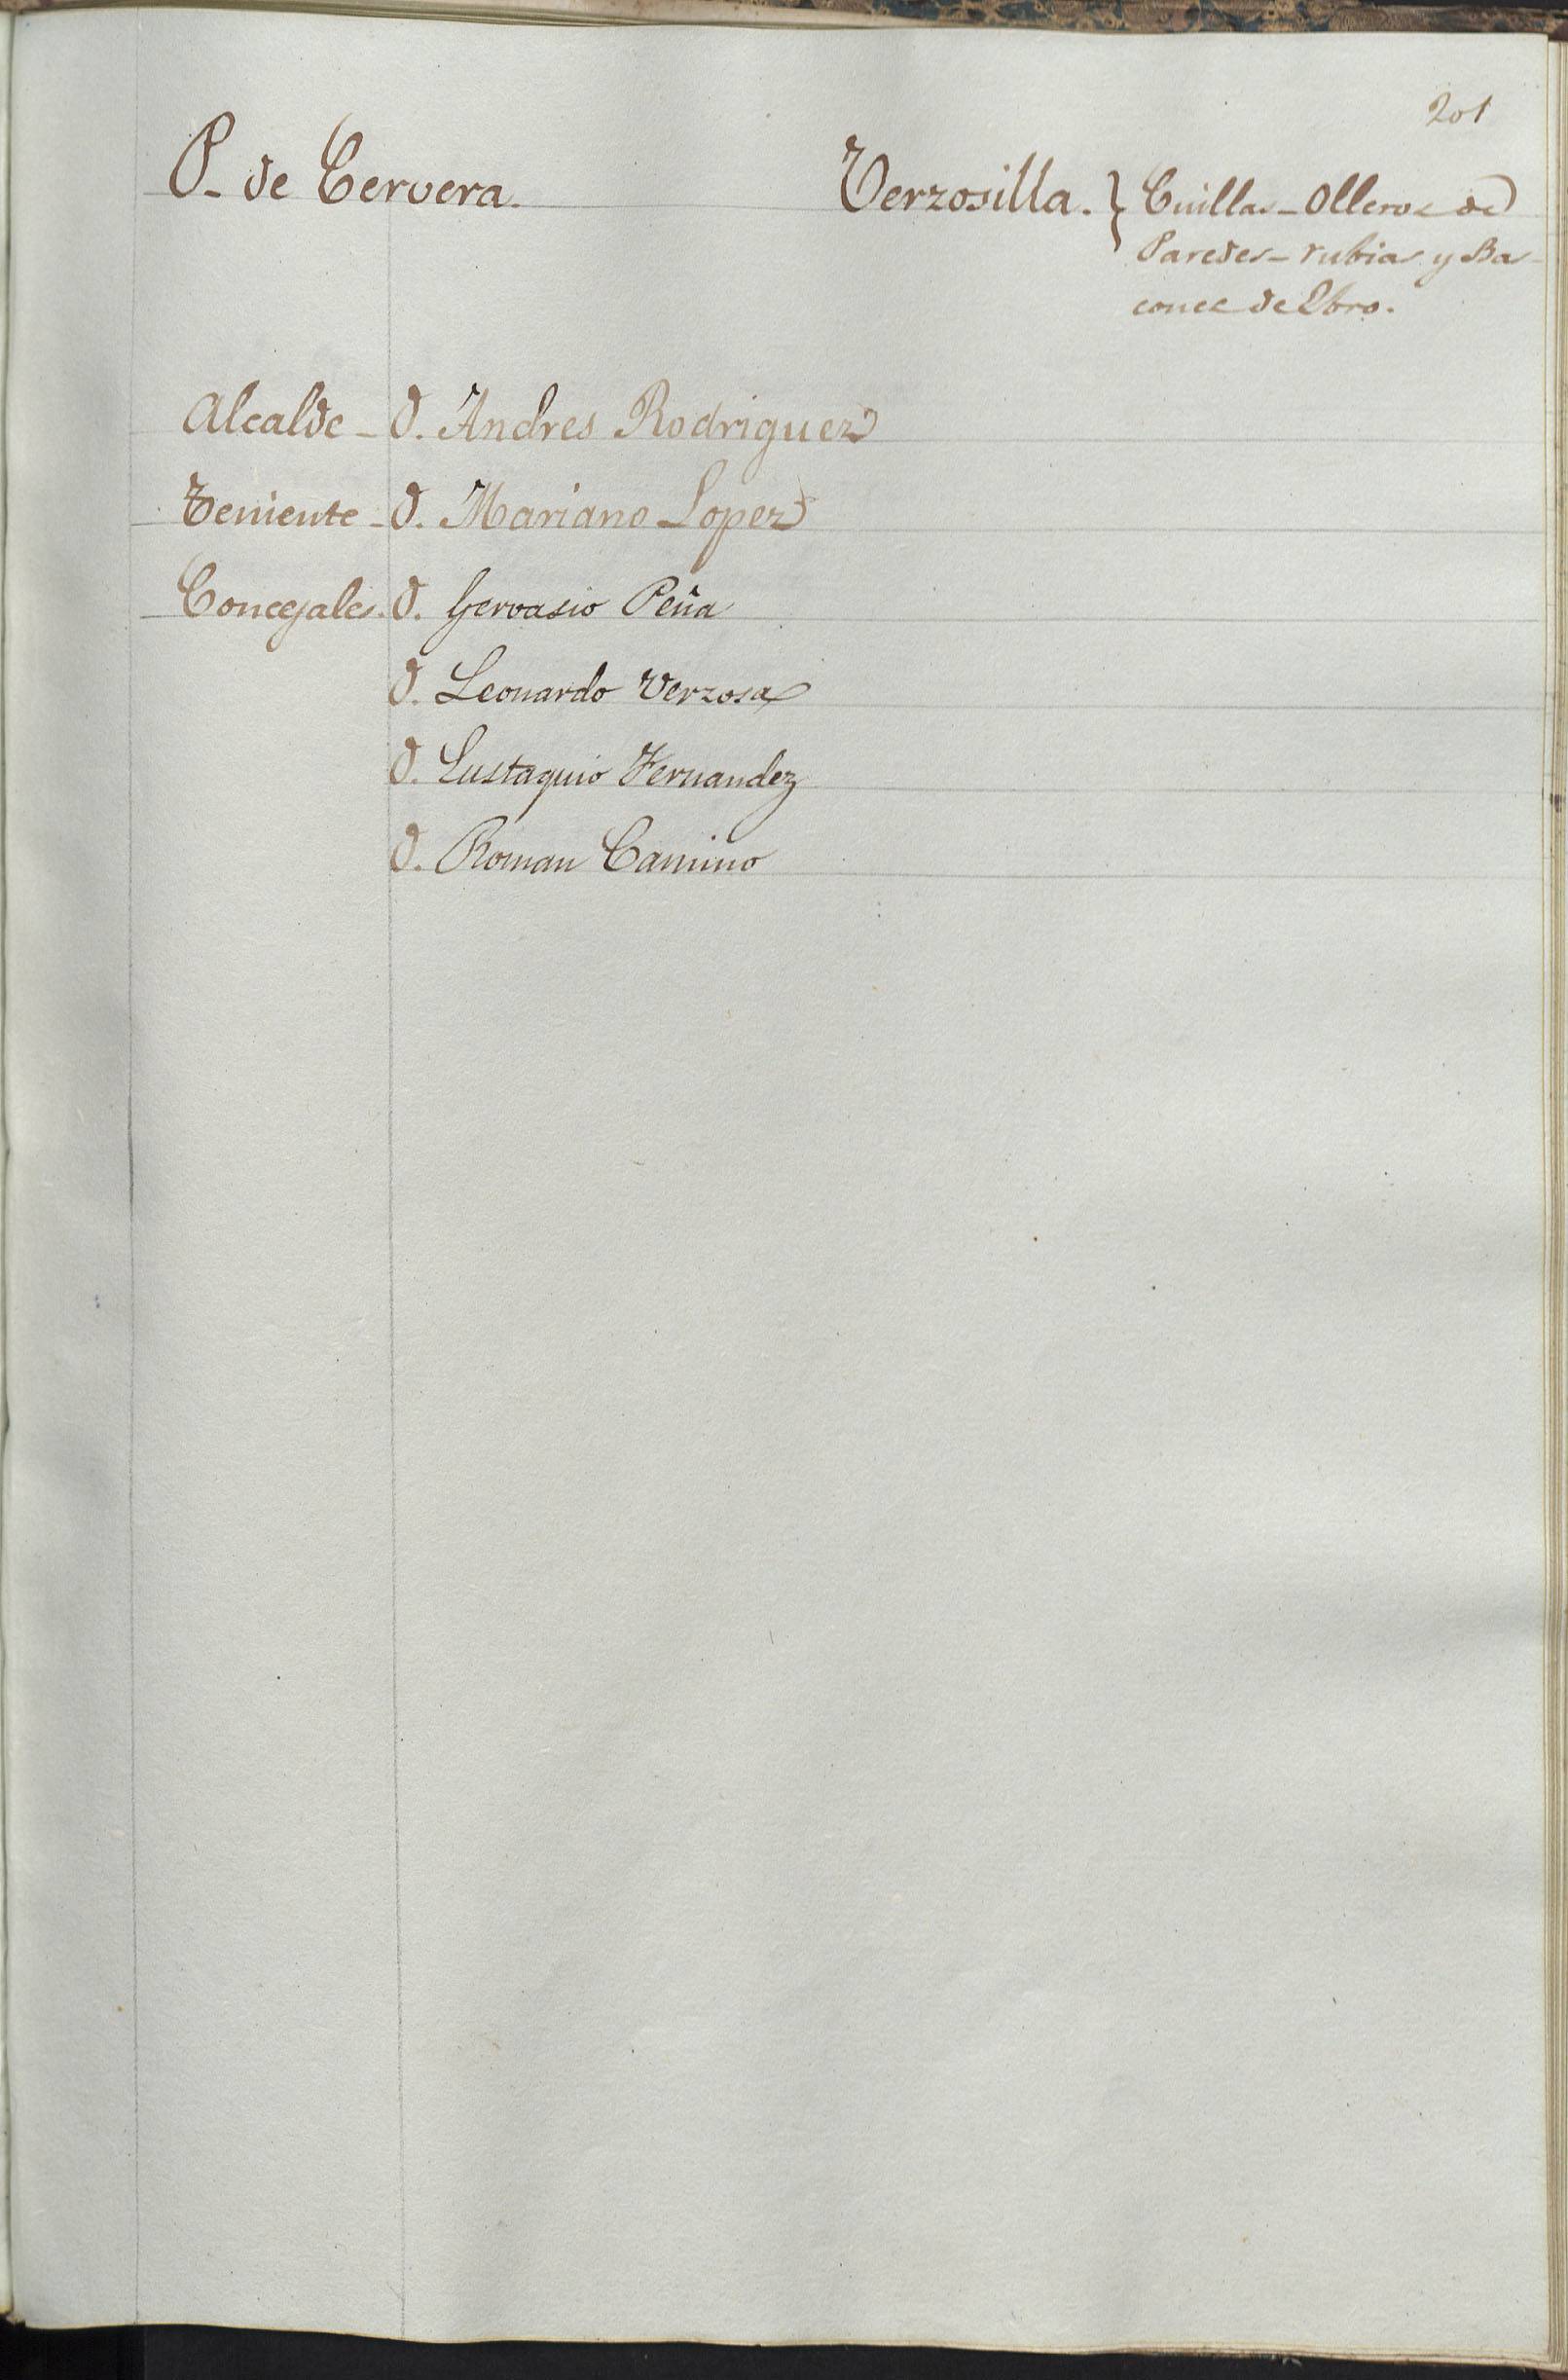 201
P. de Cervera. Verzosilla. } Cuillas - Olleros de
Paredes - rubias y Ba-
cones de Ebro.
Alcalde - D. Andres Rodriguez
Teniente - D. Mariano Lopez
Concejales. D. Gervasio Peña
D. Leonardo Verzosa
D. Eustaquio Fernandez
D. Roman Camino